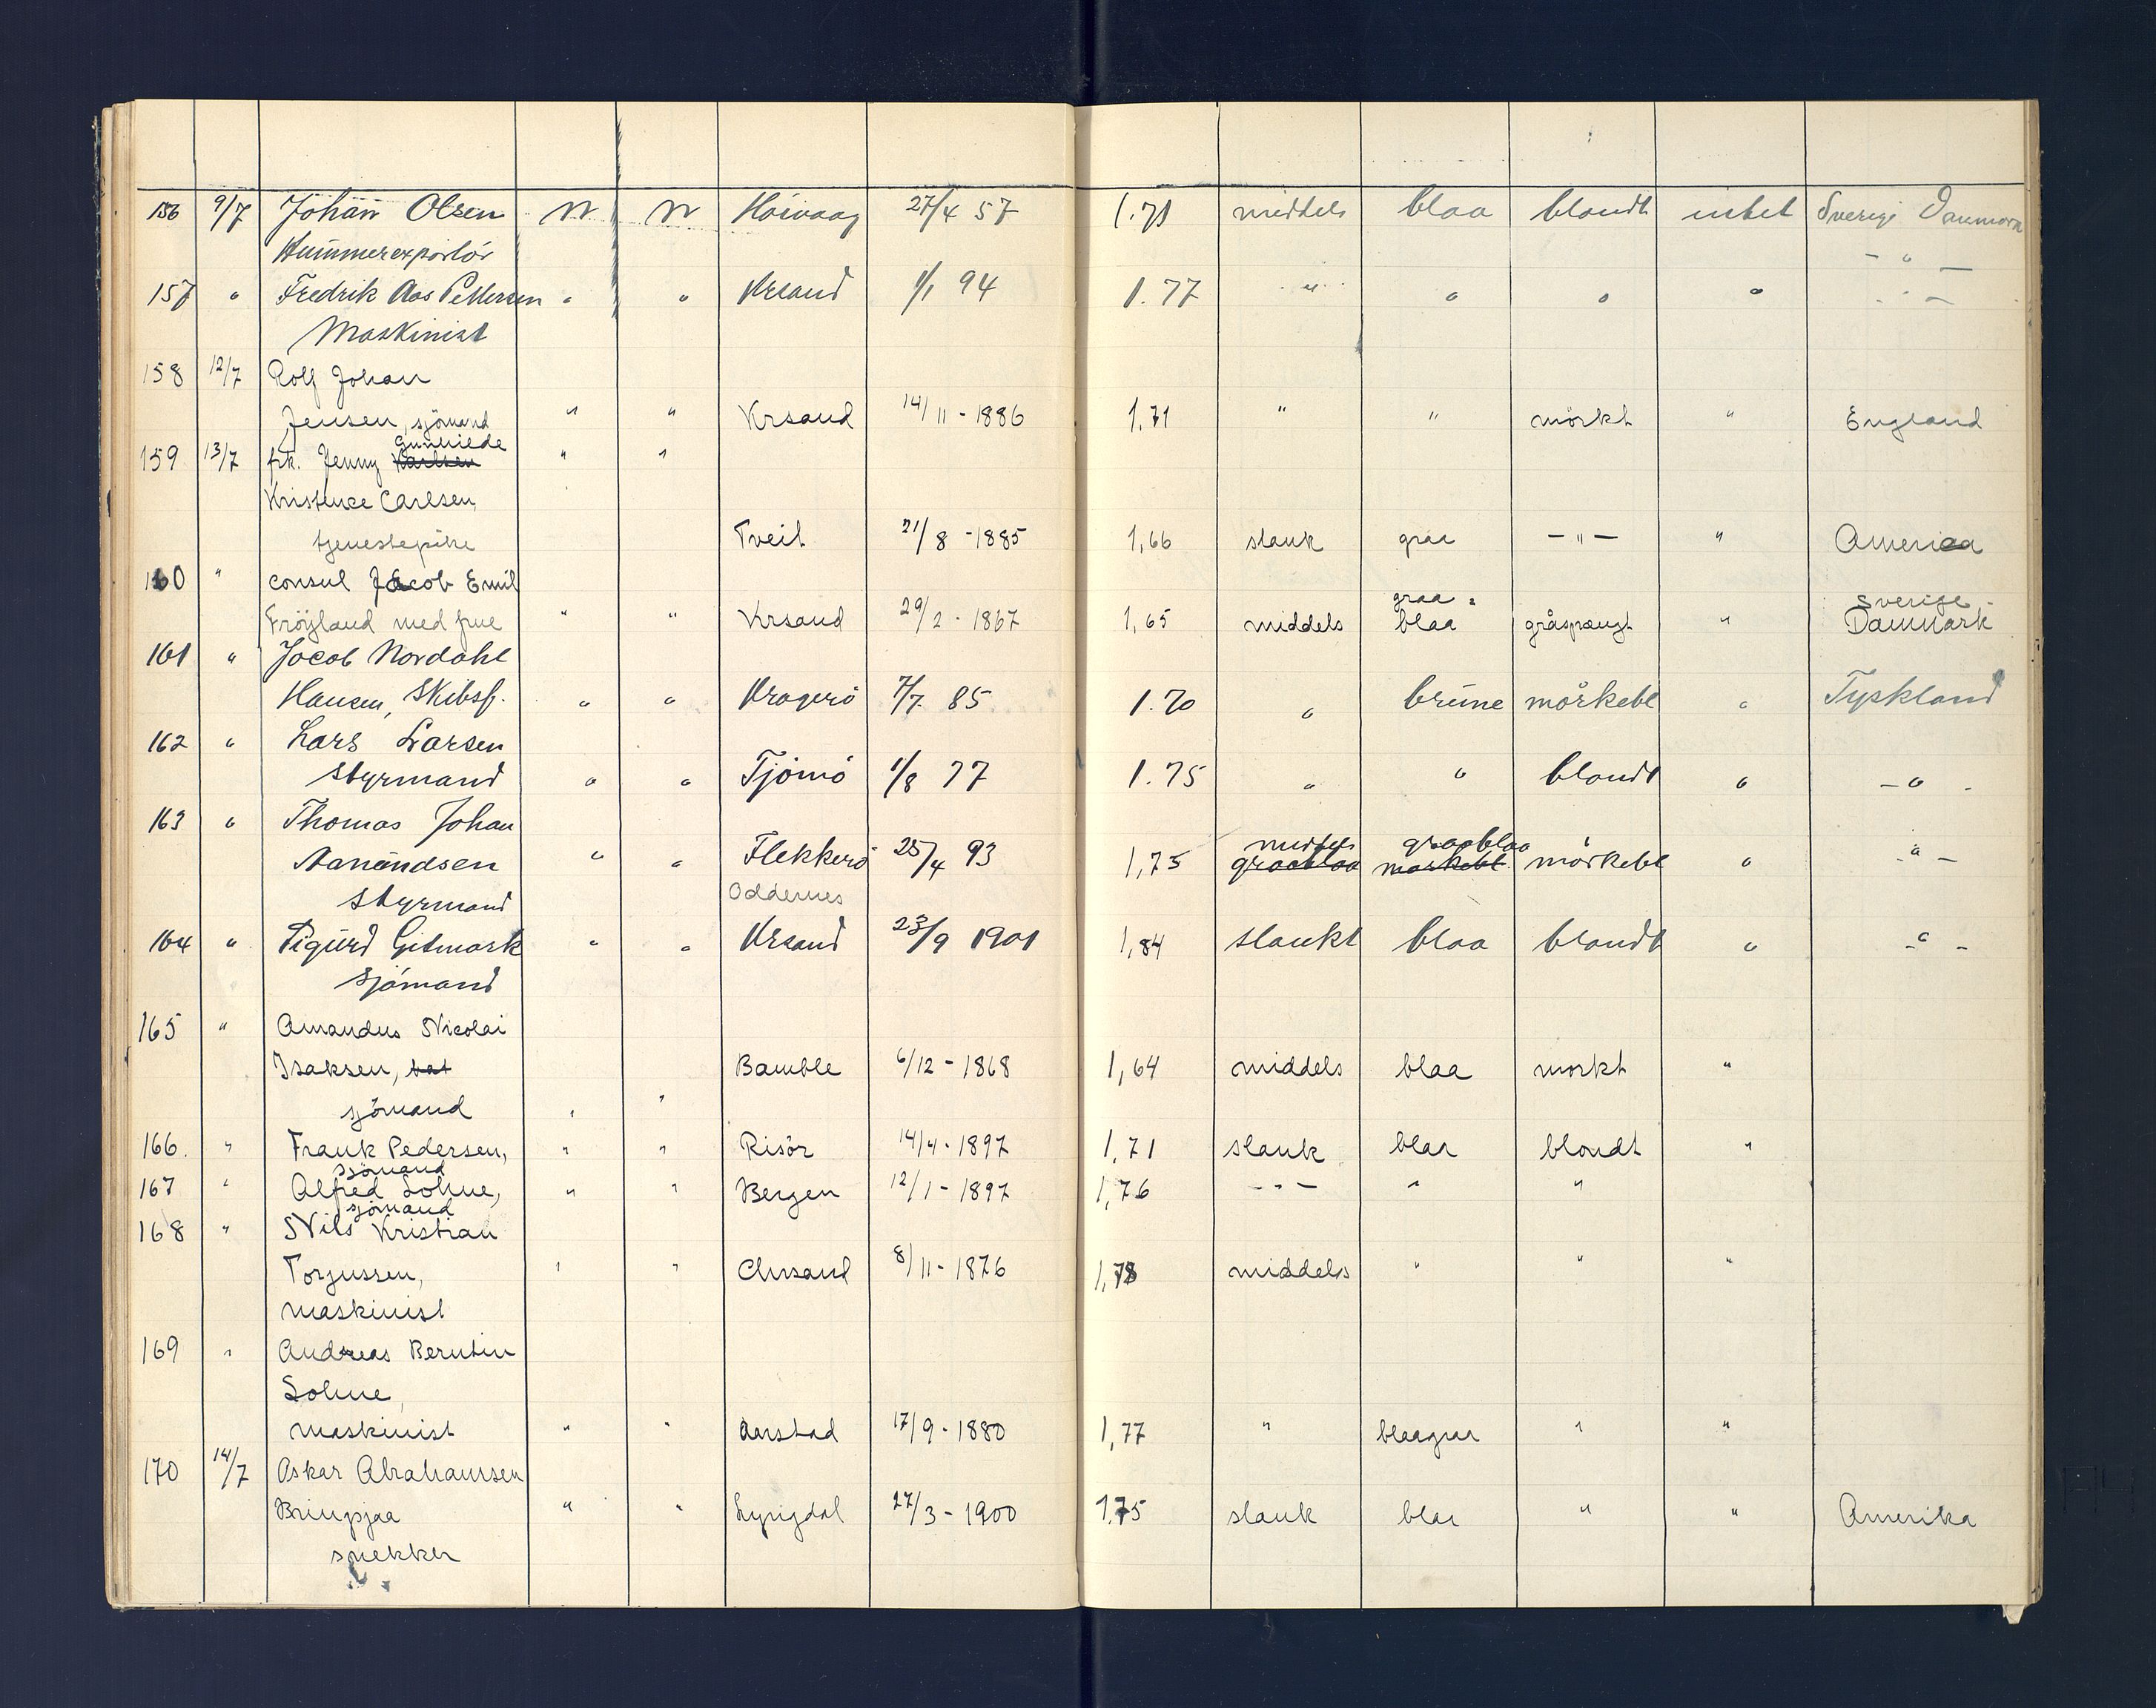 156 9/7 Johan Olsen N N Höivaag 27/4 57 1.71 middels blaa blondt intet Sverige Danmark
Hummerexportör - " -
157 " Fredrik Aas Pettersen " " Krsand 1/1 94 1.77 " " " " - " -
Maskinist
158 12/7 Rolf Johan
Jensen, sjömand " " Krsand 14/11 - 1886 1,71 " " mörkt " England
Gunhilde
159 13/7 frk. Jenny Karlsen " "
Kristence Carlsen,
tjenestepike Tveit 21/8 - 1885 1,66 slank graa - " - " America
160 " consul Jacob Emil graa = Sverige -
Fröyland med frue " " Krsand 29/2 - 1867 1,65 middels blaa gråsprængt " Danmark
161 " Jacob Nordahl
Hansen, Skibsf. " " Kragerö 7/7 85 1.70 " brune mörkebl " Tyskland
162 " Lars Larsen
Styrmand " " Tjömö 1/8 77 1.75 " " blondt " - " -
163 " Thomas Johan middels graablaa
Aanundsen " " Flekkerö 25/4 93 1,75 graablaa mørkebl mörkebl " - " -
Styrmand Oddernes
164 " Sigurd Gitmark " " Krsand 23/9 1901 1,84 slankt blaa blondt " - " -
Sjömand
165 " Amandus Nicolai
Isaksen, bat Bamble 6/12 - 1868 1,64 middels blaa mørkt "
sjömand " "
166. " Frank Pedersen, " " Risör 14/4 - 1897 1,71 slank blaa blondt "
sjömand
167 " Alfred Sohne, " " Bergen 12/1 - 1897 1,76 - " - " "
sjömand
168 " Nils Kristian
Torjussen, " " Chrsand 8/11 - 1876 1,78 middels " " "
maskinist
169 " Andreas Berntin
Sohne,
maskinist " " Aarstad 17/9 - 1880 1,77 " blaagraa " "
170 14/7 Oskar Abrahamsen
Bringsjaa " " Lyngdal 27/3 - 1900 1,75 slank blaa " " Amerika
snekker